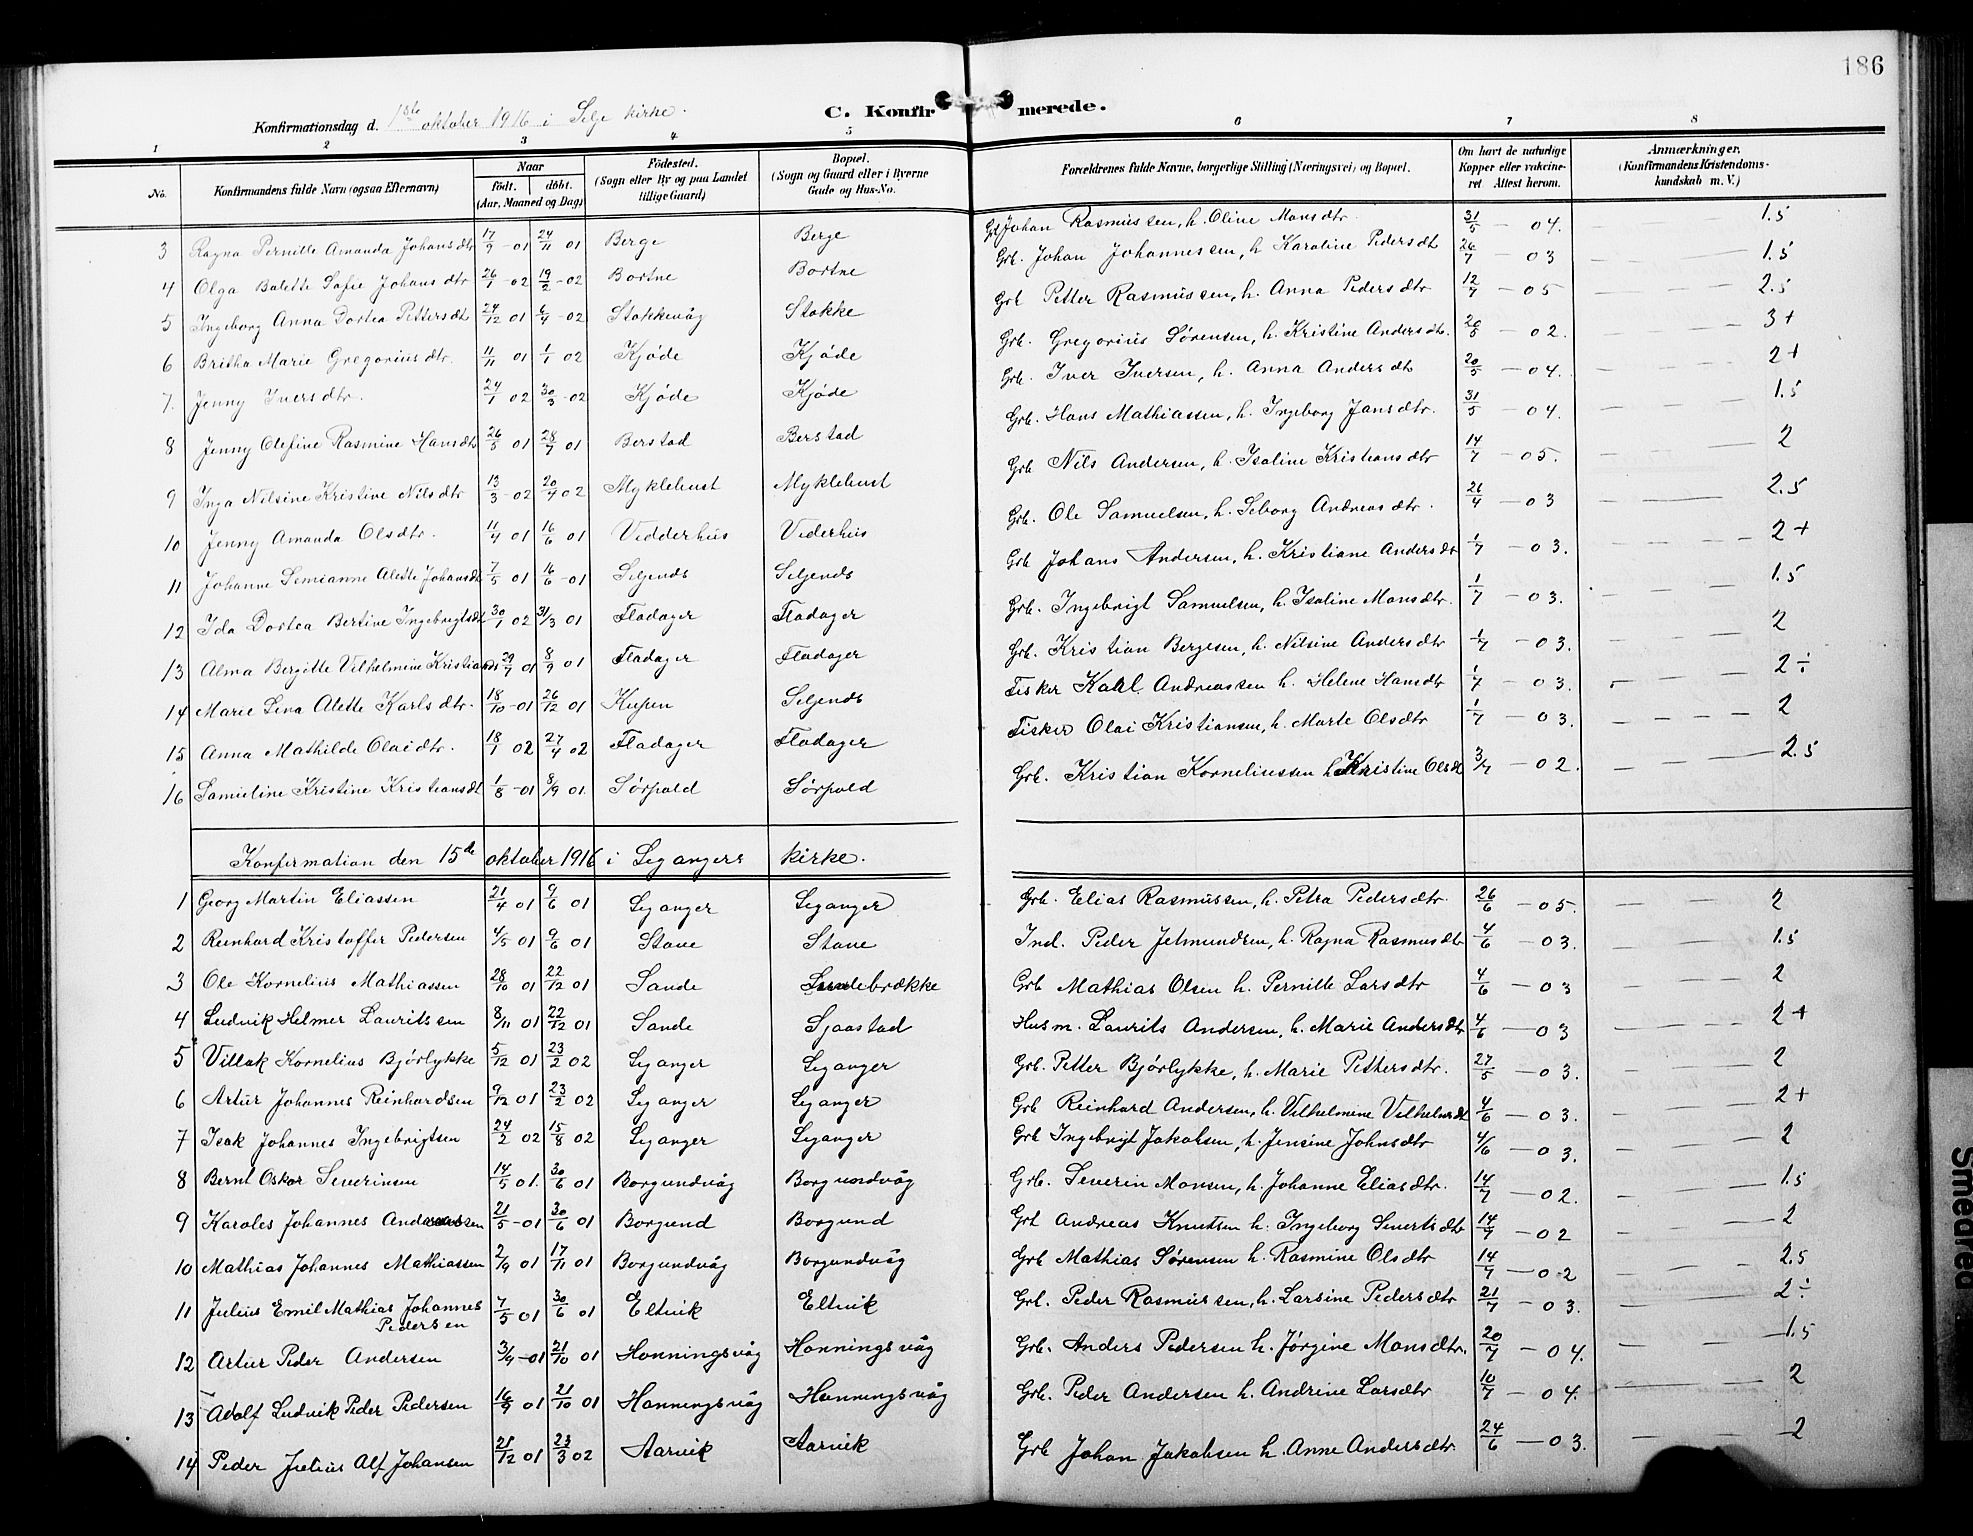 186
Konfirmationsdag d. 1ste oktober 1916 i Selje kirke. C. Konfirmerede.
1 2 3 4 5 6 7 8
No. Konfirmandens fulde Navn (ogsaa Efternavn) Naar födt. döbt. (Aar, Maaned og Dag) Födested. (Sogn eller By og paa Landet tillige Gaard) Bopæl. (Sogn og Gaard eller i Byerne Gade og Hus-No. Forældrenes fulde Navne, borgerlige Stilling (Næringsvei) og Bopæl. Om havt de naturlige Kopper eller vakcineret Attest herom. Anmærkninger. (Konfirmandens Kristendomskundskab m. V.)
3 Ragna Pernille Amanda Johansdtr 17/9 - 01 24/11 01 Berge Berge Johan Rasmussen, h. Oline Mansdtr. 31/5 - 04. 1.5
4 Olga Balette Sofie Johansdtr 26/1 - 02 19/2 - 02 Bortne Bortne Grb. Johan Johannessen, h. Karoline Pedersdt 26/7 - 03 1.5
5 Ingeborg Anna Dortea Pettersdt 24/12 01 6/4 - 02 Stokkevåg Stokke Grb Petter Rasmussen, h. Anna Pedersdtr 12/7 - 05 2.5
6 Britha Marie Gregoriusdtr. 11/11 01 1/1 02 Kjøde Kjøde Grb. Gregorius Sørensen, h. Kristine Andersdtr. 20/5 - 02. 3+
7. Jenny Iversdtr. 24/1 02 30/3 - 02 Kjøde Kjøde Grb. Iver Iversen, h. Anna Andersdtr 20/5 - 04. 2+
8 Jenny Olefine Rasmine Hansdtr 26/5 01 28/7 01 Berstad Berstad Grb. Hans Mathiassen, h. Ingeborg Jansdtr. 31/5 - 04. 1.5
9 Inga Nilsine Kristine Nilsdtr 13/3 - 02 20/4 02 Myklebust Myklebust Grb Nils Andersen, h. Isaline Kristiansdtr 14/7 - 05. 2
10 Jenny Amanda Olsdtr. 11/4 01 16/6 01 Vedderhus Vederhus Grb. Ole Samuelsen, h. Seborg Andreasdtr. 26/4 - 03 2.5
11 Johanne Semianne Alette Johansdt 7/5 01 16/6 - 01 Seljends Seljends Grb Johans Andersen, h. Kristiane Andersdtr 1/7 - 03. 2+
12 Ida Dortea Bertine Ingebrigtsdt 30/1 02 31/3 01 Fladager Fladager Grb. Ingebrigt Samuelsen, h. Isaline Mansdtr. 1/7 - 03. 1.5
13 Alma Bergitte Vilhelmine Kristiansdt 29/7 01 8/9 01 Fladager Fladager Grb. Kristian Bergesen, h. Nilsine Andersdtr 1/7 - 03. 2
14 Marie Lina Alette Karlsdtr. 18/10 - 01 26/12 01 Kupen Seljends Fisker Karl Andreassen h. Helene Hansdtr 1/7 - 03. 2÷
15 Anna Mathilde Olaidtr. 18/1 02 27/4 02 Fladager Fladager Fisker Olai Kristiansen, h. Marte Olsdtr 1/7 - 03. 2
16 Samueline Kristine Kristiansdt 1/8 - 01 8/9 01. Sørpold Sørpold Grb. Kristian Korneliussen h. Kristine Olsdt 3/7 - 02. 2.5
Konfirmation den 15de oktober 1916 i Leganger kirke.
1 Georg Martin Eliassen 21/4 01 9/6 01 Leganger Leganger Grb. Elias Rasmussen, h. Petra Pedersdtr. 26/6 - 05. 2
2 Reinhard Kristoffer Pedersen 4/5 01 9/6 01 Stave Stave Ind. Peder Jetmundsen, h. Ragna Rasmusdtr 4/6 - 03. 1.5
3 Ole Kornelius Mathiassen 28/10 01 22/12 01 Sande Sandebrække Grb Mathias Olsen h. Pernille Larsdtr 4/6 - 03 2
4 Ludvik Helmer Lauritssen 8/11 01 22/12 01 Sande Sjaastad Husm. Laurits Andersen, h. Marie Andersdtr 4/6 - 03 2+
5 Villak Kornelius Bjørlykke 5/12 01 23/2 02 Leganger Leganger Grb. Petter Bjørlykke, h. Marie Pettersdtr. 27/5 - 03. 2
6 Artur Johannes Reinhardsen 9/12 01 23/2 02 Leganger Leganger Grb Reinhard Andersen, h. Vilhelmine Vilhelmsdt 4/6 - 03. 2+
7 Isak Johannes Ingebrigtsen 24/2 02 15/8 02 Leganger Leganger Grb Ingebrigt Jakobsen, h. Jensine Johnsdtr 4/6 - 03. 2
8 Bernt Oskar Severinsen 14/5 01. 30/6 01 Borgundvåg Borgundvåg Grb. Severin Monsen, h. Johanne Eliasdtr. 14/7 - 02. 1.5
9 Karoles Johannes Andreassen 21/5 - 01 30/6 01 Borgund Borgund Grb Andreas Knutsen h. Ingeborg Sivertsdtr 14/7 - 02 2
10 Mathias Johannes Mathiassen 2/9 01 17/11 01 Borgundvåg Borgundvåg Grb Mathias Sørensen h. Rasmine Olsdtr 14/7 - 02 2.5
11 Julius Emil Mathias Johannes Pedersen 7/5 01 30/6 01 Eltvik Eltvik Grb. Peder Rasmussen, h. Larsine Pedersdtr 21/7 - 03. 2÷
12 Artur Peder Andersen 3/9 - 01 21/10 01 Honningsvåg Honningsvåg Grb. Anders Pedersen h. Jørgine Monsdtr. 20/7 - 04. 1.5
13 Adolf Ludvik Peder Pedersen 16/9 01 21/10 01 Honningsvåg Honningsvåg Grb. Peder Andersen h. Andrine Larsdtr 10/7 - 04. 2
14 Peder Julius Alf Johansen 28/12 01 23/3 02 Aarvik Aarvik Grb Johan Jakobsen h. Anne Andersdtr. 24/6 - 03. 2
Smedred